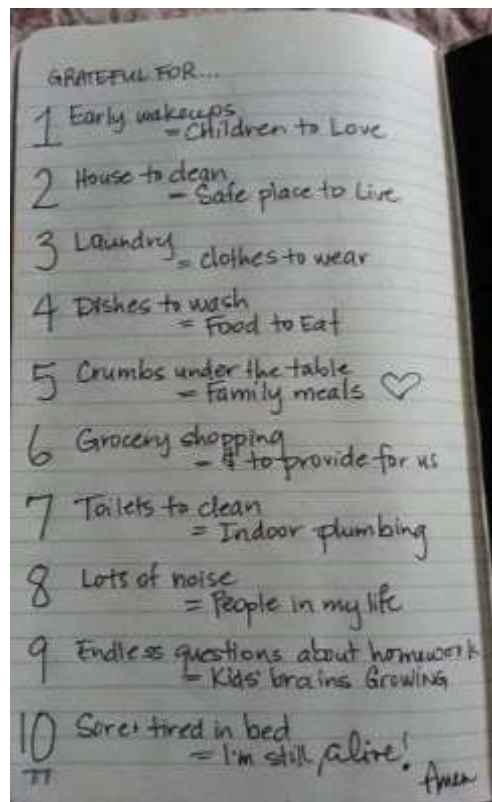 GRATEFUL FOR...
1 Early wakeups
= Children to Love
2 House to clean
= Safe place to Live
3 Laundry
= clothes to wear
4 Dishes to wash
= Food to Eat
5 Crumbs under the table
= Family meals ♡
6 Grocery shopping
= $ to provide for us
7 Toilets to clean
= Indoor plumbing
8 Lots of noise
= People in my life
9 Endless questions about homework
= Kids' brains Growing
10 Sore + tired in bed
= I'm still alive!
Amen